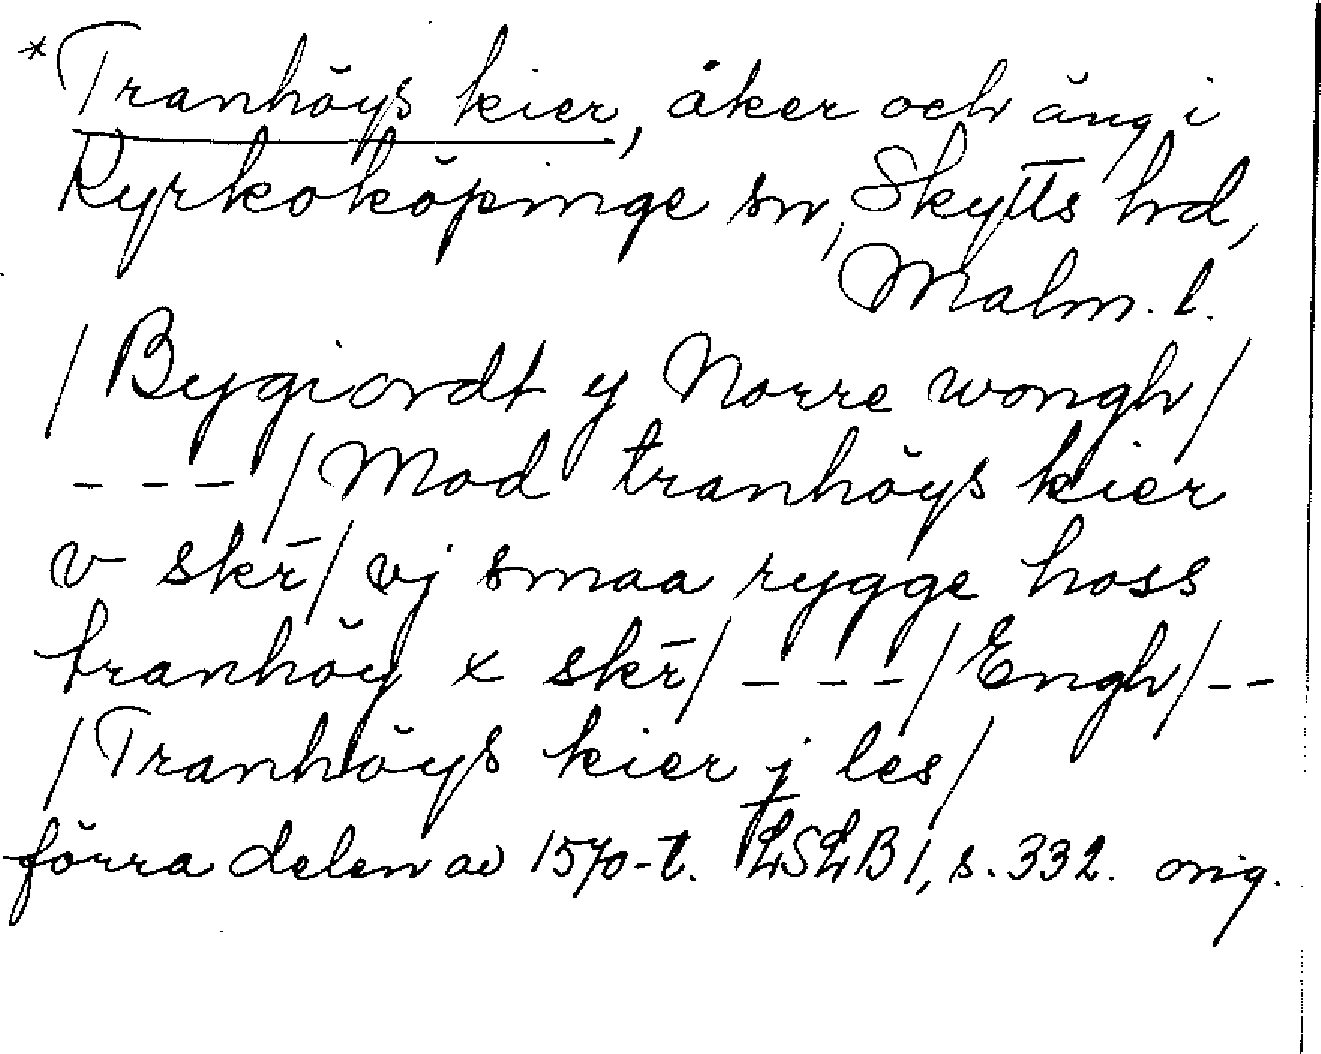 *Tranhöys kier, åker och äng i
Kyrkoköpinge sn, Skytts hd,
Malm. l.
/ Bygiordt y Norre wongh/
- - - / Mod tranhöys kier
v skr̄ / vj smaa rygge hoss
tranhöy x skr̄ / - - - / Engh / - -
/ Tranhöys kier j les /
förra delen av 1570-t. LSLB 1, s. 332. orig.